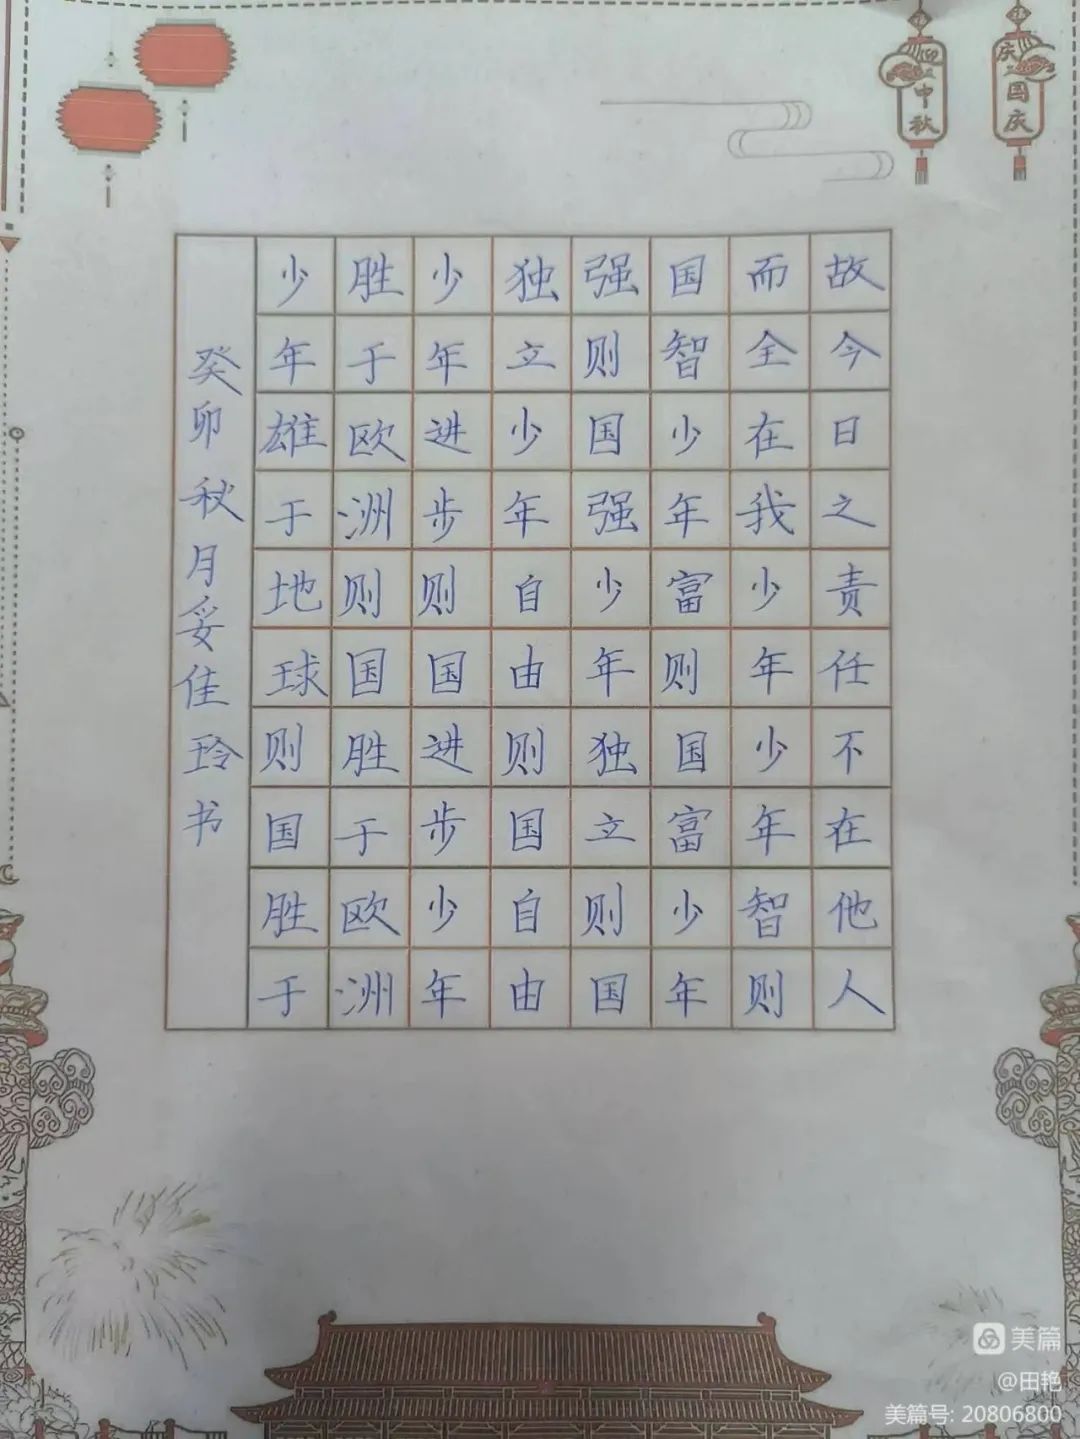 故今日之责任不在他人
而全在我少年少年智则
国智少年富则国富少年
强则国强少年独立则国
独立少年自由则国自由
少年进步则国进步少年
胜于欧洲则国胜于欧洲
少年雄于地球则国胜于
癸卯秋月妥佳玲书
迎中秋
庆国庆
美篇
@田艳
美篇号: 20806800